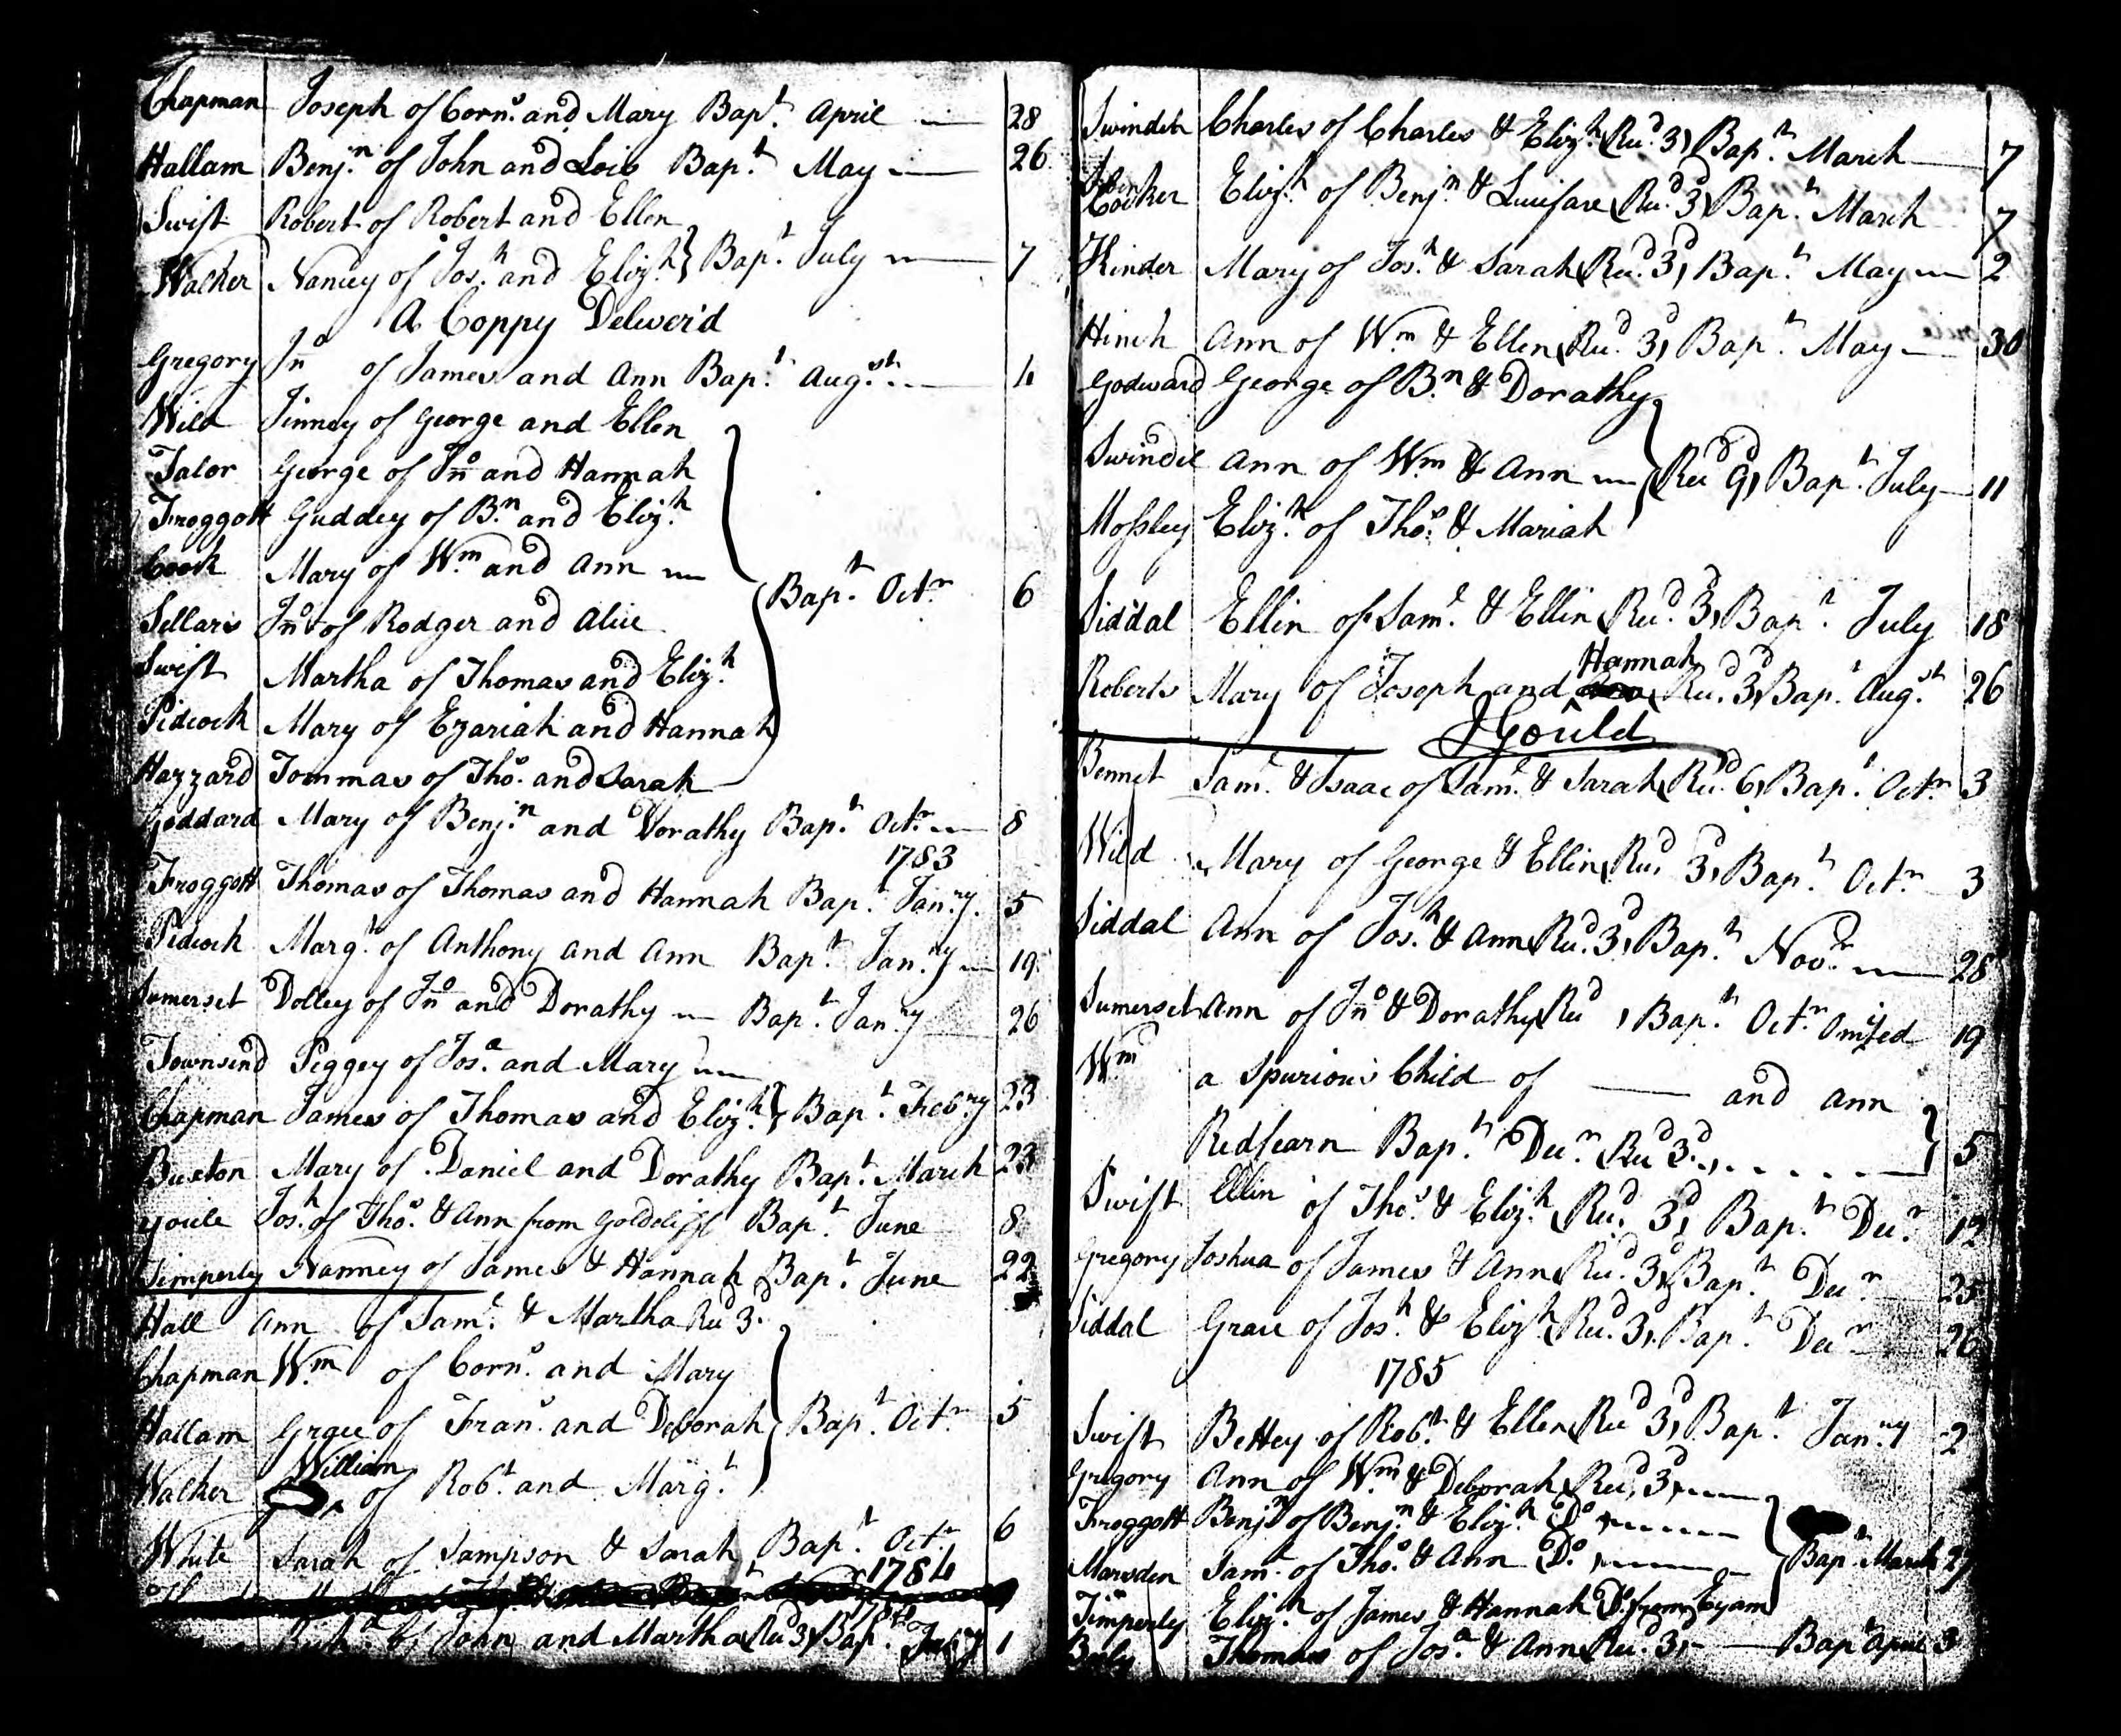 Chapman Joseph of Corns. and Mary Bapt. April 28
Hallam Benjn. of John and Lois Bapt. May 26
Swift Robert of Robert and Ellen
Walker Nancey of Josh. and Elizh. } Bapt. July 7
A Coppy Deliver'd
Gregory Jno of James and Ann Bapt. Augst. 4
Wild Jinney of George and Ellen
Talor George of Jno and Hannah
Froggott Guddey of Bn. and Elizh.
Cook Mary of Wm. and Ann
Bapt. Octr. 6
Sellars Jno of Rodger and Alice
Swift Martha of Thomas and Elizh.
Pidcock Mary of Ezariah and Hannah
Hazzard Tommas of Thos. and Sarah
Goddard Mary of Benjn. and Dorathy Bapt. Octr. 8
1783
Froggott Thomas of Thomas and Hannah Bapt. Janry. 5
Pidcock Margt. of Anthony and Ann Bapt. Janry. 19
Somerset Dolley of Jno and Dorathy Bapt. Janry 26
Townsend Peggey of Josa. and Mary
Chapman James of Thomas and Elizh. } Bapt. Febry 23
Buxton Mary of Daniel and Dorathy Bapt. March 23
Youle Josh. of Thos. & Ann from Goldcliff Bapt. June 8
Timperly Nanney of James & Hannah Bapt. June 22
Hall Ann of Saml. & Martha Recd 3d.
Chapman Wm. of Corns. and Mary
Hallam Grace of Frans. and Deborah } Bapt. Octr. 5
William
Walker of Robt. and Margt.
White Sarah of Sampson & Sarah Bapt. Octr. 6
1784
of John and Martha Recd 3d, Bapt. 1
Swindel Charles of Charles & Elizh. Recd. 3d, Bapt. March 7
Cocker Elizh. of Benjn. & Lucifare Recd. 3d, Bapt. March 7
Kinder Mary of Josh. & Sarah Recd. 3d, Bapt. May 2
Hinch Ann of Wm. & Ellen Recd. 3d, Bapt. May 30
Godward George of Bn. & Dorathy
Swindel Ann of Wm. & Ann } Recd 9d, Bapt. July 11
Mossley Elizh. of Thos. & Mariah
Siddal Ellin of Saml. & Ellin Recd. 3d, Bapt. July 18
Hannah
Roberts Mary of Joseph and Recd. 3d, Bapt. Augst. 26
J Gould
Bennet Saml. & Isaac of Saml. & Sarah Recd. 6, Bapt. Octr. 3
Wild Mary of George & Ellin Recd. 3d, Bapt. Octr. 3
Siddal Ann of Josh. & Ann Recd. 3d, Bapt. Novr. 28
Sumerset Ann of Jno & Dorathy Recd , Bapt. Octr. Omited 19
Wm a Spurious Child of —— and Ann
Redfearn Bapt. Decr. Recd 3d. } 5
Swift Ellin of Thos. & Elizh. Recd. 3d, Bapt. Decr. 12
Gregory Joshua of James & Ann Recd. 3d, Bapt. Decr. 25
Siddal Grace of Josh. & Elizh. Recd. 3d, Bapt. Decr. 26
1785
Swift Bettey of Robt. & Ellen Recd 3d, Bapt. Janry 2
Gregory Ann of Wm. & Deborah Recd. 3d,
Froggott Benjn of Benjn. & Elizh. Do.
Marsden Saml. of Thos. & Ann Do. Bapt. March 27
Timperly Elizh. of James & Hannah Do. from Eyam
Thomas of Josa. & Ann Recd. 3d, Bapt April 3